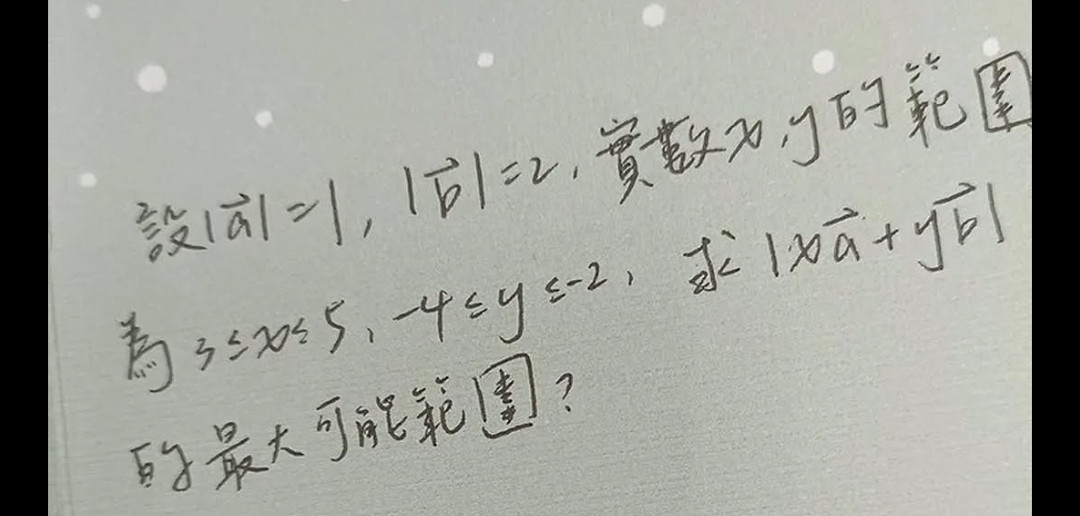 設|a⃗|=1, |b⃗|=2, 實數x,y的範圍
為3≤x≤5, -4≤y≤-2, 求|xa⃗+yb⃗|
的最大可能範圍?